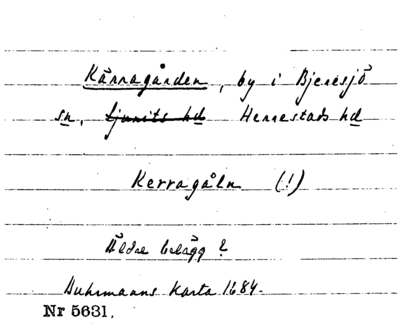 Kärragården, by i Bjeresjö
sn, Ljunits hd Herrestads hd
Kerragåln (!)
Äldre belägg?
Buhrmanns karta 1684.
Nr 5631.